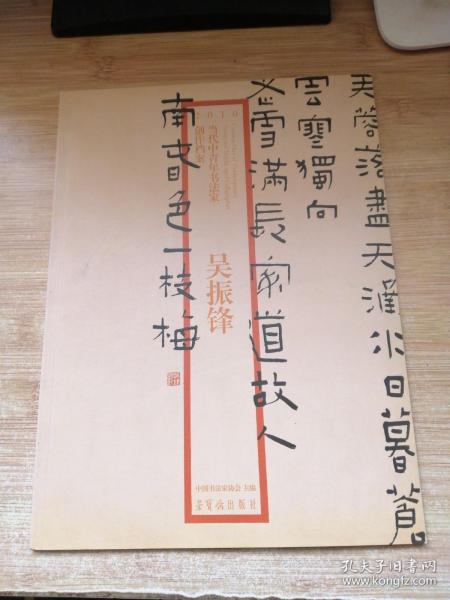 芙蓉落盡天涵水日暮蒼
雲寒獨向
老雪滿長安道故人
南春色一枝梅
2010
当代中青年书法家
创作档案
吴振锋
中国书法家协会 主编
榮寶齋出版社
孔夫子旧书网
kongfz.com